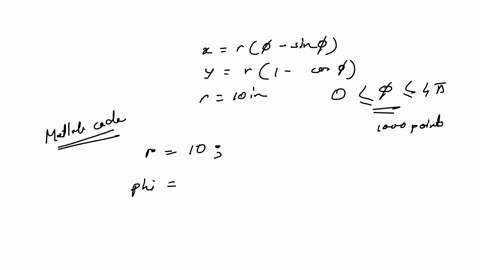 x = r(φ - sinφ)
y = r(1 - cosφ)
r = 10in
0 ≤ φ ≤ 4π
1000 points
Matlab code
r = 10;
phi =